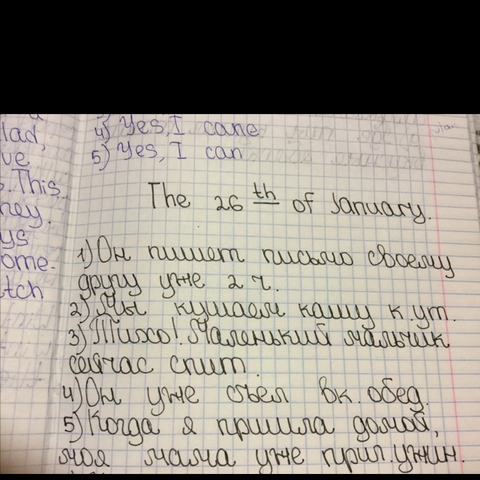 lad,
ve
. This
ney.
ys
ome.
tch
4) Yes, I cane
5) Yes, I can
The 26th of January.
1) Он пишет письмо своему
другу уже 2 ч.
2) Мы кушаем кашу к. ут.
3) Тихо! Маленький мальчик
сейчас спит.
4) Он уже съел вк. обед.
5) Когда я пришла домой,
моя мама уже приг. ужин.